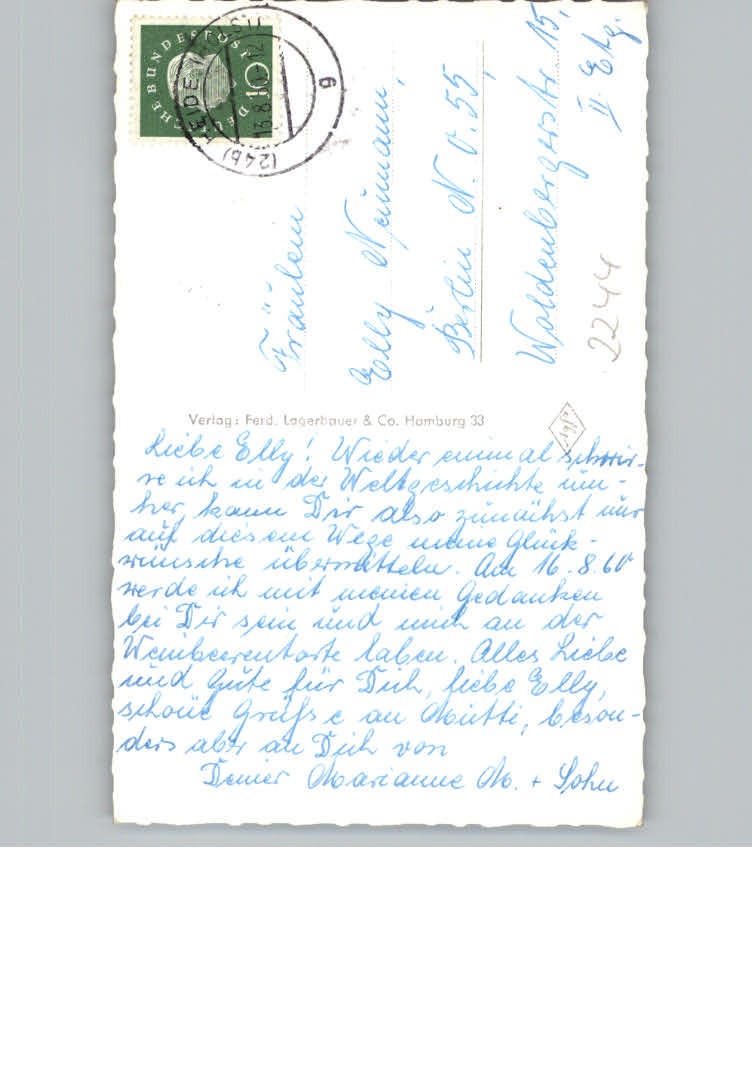 DEUTSCHE BUNDESPOST
10
(24b) HEIDE
13.8.60
g
Fräulein
Elly Neumann,
Berlin N. O. 55,
Woldenbergerstr. 15,
II. Etg.
2244
Verlag: Ferd. Lagerbauer & Co. Hamburg 33
Liebe Elly! Wieder einmal schwir-
re ich in der Weltgeschichte um-
her, kann Dir also zunächst nur
auf diesem Wege meine Glück-
wünsche übermitteln. Am 16.8.60
werde ich mit meinen Gedanken
bei Dir sein und mich an der
Weinbeerentorte laben. Alles Liebe
und Gute für Dich, liebe Elly,
schöne Grüße an Mutti, beson-
ders aber an Dich von
Deiner Marianne M. + Sohn